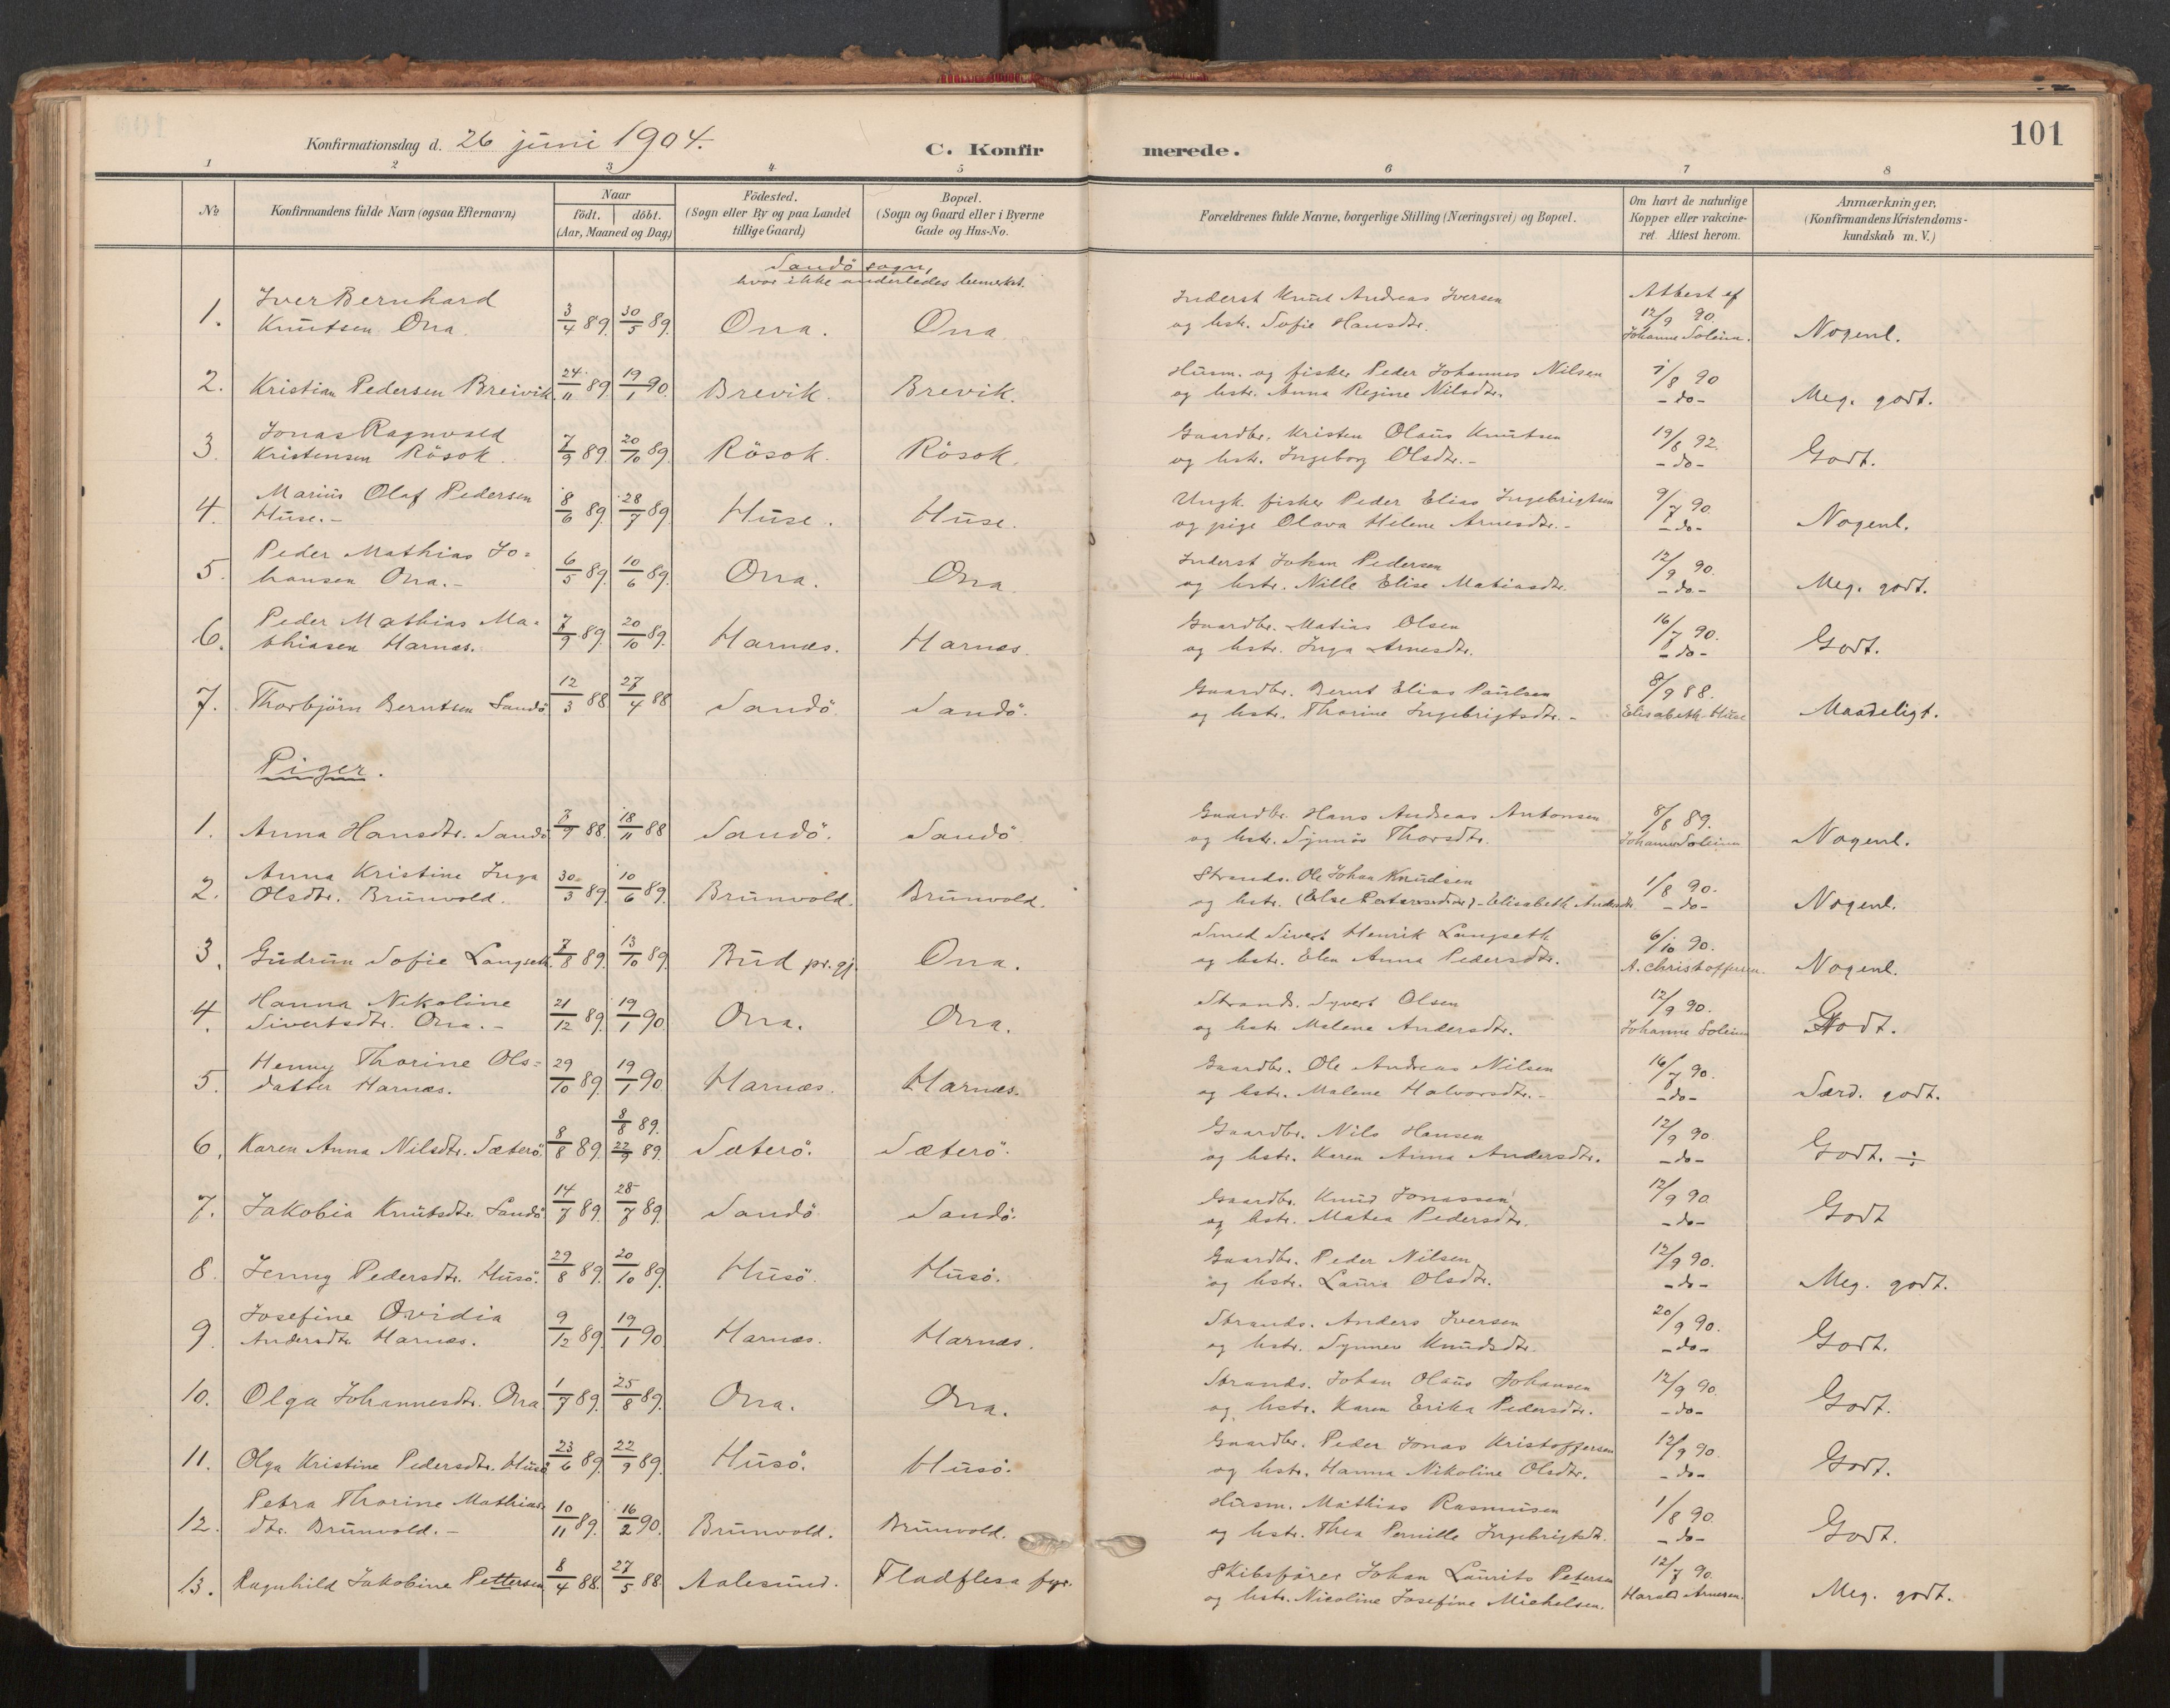 101
Konfirmationsdag d. 26 juni 1904.
C. Konfirmerede.
1 2 3 4 5 6 7 8
No
Konfirmandens fulde Navn (ogsaa Efternavn)
Naar
födt. döbt.
(Aar, Maaned og Dag)
Födested.
(Sogn eller By og paa Landet
tillige Gaard)
Bopæl.
(Sogn og Gaard eller i Byerne
Gade og Hus-No.
Forældrenes fulde Navne, borgerlige Stilling (Næringsvei) og Bopæl.
Om havt de naturlige
Kopper eller vakcine-
ret. Attest herom.
Anmærkninger.
(Konfirmandens Kristendoms-
kundskab m. V.)
Sandö sogn,
hvor ikke anderledes bemerket.
Iver Bernhard Inderst Knut Andreas Iversen Attest af
1. Knutsen Ona. 3/4 89. 30/5 89. Ona. Ona og hstr. Sofie Hansdtr. 12/9 90. Johanne Soleim. Nogenl.
2. Kristian Pedersen Breivik 24/11 89. 19/1 90. Brevik. Brevik. Husm. og fisker Peder Johannes Nilsen 1/8 90
og hstr. Anna Regine Nilsdtr. -do- Meg. godt.
Jonas Ragnvald Gaardbr. Kristen Olaus Knutsen 19/8 92.
3. Kristensen Rösok. 7/9 89. 20/10 89. Rösok. Rösok. og hstr. Ingeborg Olsdtr.- -do- Godt.
Marius Olaf Pedersen Ungk. fisker Peder Elias Ingebrigtsen 9/7 90.
4. Huse.- 8/6 89. 28/7 89. Huse. Huse. og pige Olava Helene Arnesdtr.- -do- Nogenl.
Peder Mathias Jo= Inderst Johan Pedersen 12/9 90.
5. hansen Ona.- 6/5 89. 10/6 89. Ona. Ona og hstr. Nille Elise Matiasdtr. -do- Meg. godt.
Peder Mathias Ma= Gaardbr. Matias Olsen 16/7 90.
6. thiasen Harnæs. 7/9 89. 20/10 89. Harnæs. Harnæs. og hstr. Inga Arnesdtr. -do- Godt.
7. Thorbjörn Berntsen Sandö 12/3 88 27/4 88 Sandö Sandö. Gaardbr. Bernt Elias Paulsen 8/9 88.
og hstr. Thorine Ingebrigtsdtr.- Elisabeth Huse Maadeligt.
Piger.
1. Anna Hansdtr. Sandö 7/9 88. 18/11 88 Sandö. Sandö Gaardbr. Hans Andreas Antonsen 8/8 89.
og hstr. Synnös Thorsdtr. Johanne Soleim Nogenl.
Anna Kristine Inga Strands. Ole Johan Knudsen 1/8 90.
2. Olsdtr. Brunvold. 30/3 89. 10/6 89. Brunvold. Brunvold. og hstr. -Elisabeth Andersdtr. -do- Nogenl.
3. Gudrun Sofie Langseth 7/8 89. 13/10 89. Bud pr.gj. Ona. Smed Sivert Henrik Langseth 6/10 90.
og hstr. Elen Anna Pedersdtr. A. Christoffersen. Nogenl.
Hanna Nikoline Strands. Syvert Olsen 12/9 90.
4. Sivertsdtr. Ona.- 21/12 89. 19/1 90. Ona. Ona. og hstr. Malena Andersdtr. Johanne Soleim Godt.
Henny Thorine Ols= Gaardbr. Ole Andreas Nilsen 16/7 90.
5. datter Harnæs. 29/10 89. 19/1 90. Harnæs. Harnæs. og hstr. Malene Halvorsdtr.- -do- Særd. godt.
8/8 89.
6. Karen Anna Nilsdtr. Sæterö. 8/8 89. 22/9 89. Sæterö. Sæterö. Gaardbr. Nils Hansen 12/9 90
og hstr. Karen Anna Andersdtr. -do- Godt. ÷
7. Jakobia Knutsdtr. Sandö 14/7 89. 28/7 89. Sandö. Sandö. Gaardbr. Knud Jonassen 12/9 90
og hstr. Matea Pedersdtr. -do- Godt
8. Jenny Pedersdtr. Husö. 29/8 89. 20/10 89. Husö. Husö. Gaardbr. Peder Nilsen 12/9 90.
og hstr. Laura Olsdtr. -do- Meg. godt.
Josefine Ovidia Strands. Anders Iversen 20/9 90.
9. Andersdtr. Harnæs. 9/12 89. 19/1 90 Harnæs. Harnæs. og hstr. Synnev Knudsdtr. -do- Godt.
10. Olga Johannesdtr. Ona 1/7 89. 25/8 89. Ona. Ona. Strands. Johan Olaus Johansen 12/9 90.
og hstr. Karen Erika Pedersdtr. -do- Godt.
11. Olga Kristine Pedersdtr. Husö 23/6 89. 22/9 89. Husö. Husö. Gaardbr. Peder Jonas Kristoffersen 12/9 90.
og hstr. Hanna Nikoline Olsdtr. -do- Godt.
Petra Thorine Mathias Husm. Mathias Rasmusen 1/8 90.
12. dtr. Brunvold.- 10/11 89. 16/2 90. Brunvold. Brunvold. og hstr. Thea Pernille Ingebrigtsdtr. -do- Godt.
13. Ragnhild Jakobine Pettersen 8/4 88. 27/5 88. Aalesund. Fladflesa fyr. Skibsförer Johan Laurits Petersen 12/7 90.
og hstr. Nicoline Josefine Michelsen. Harald Arnesen. Meg. godt.